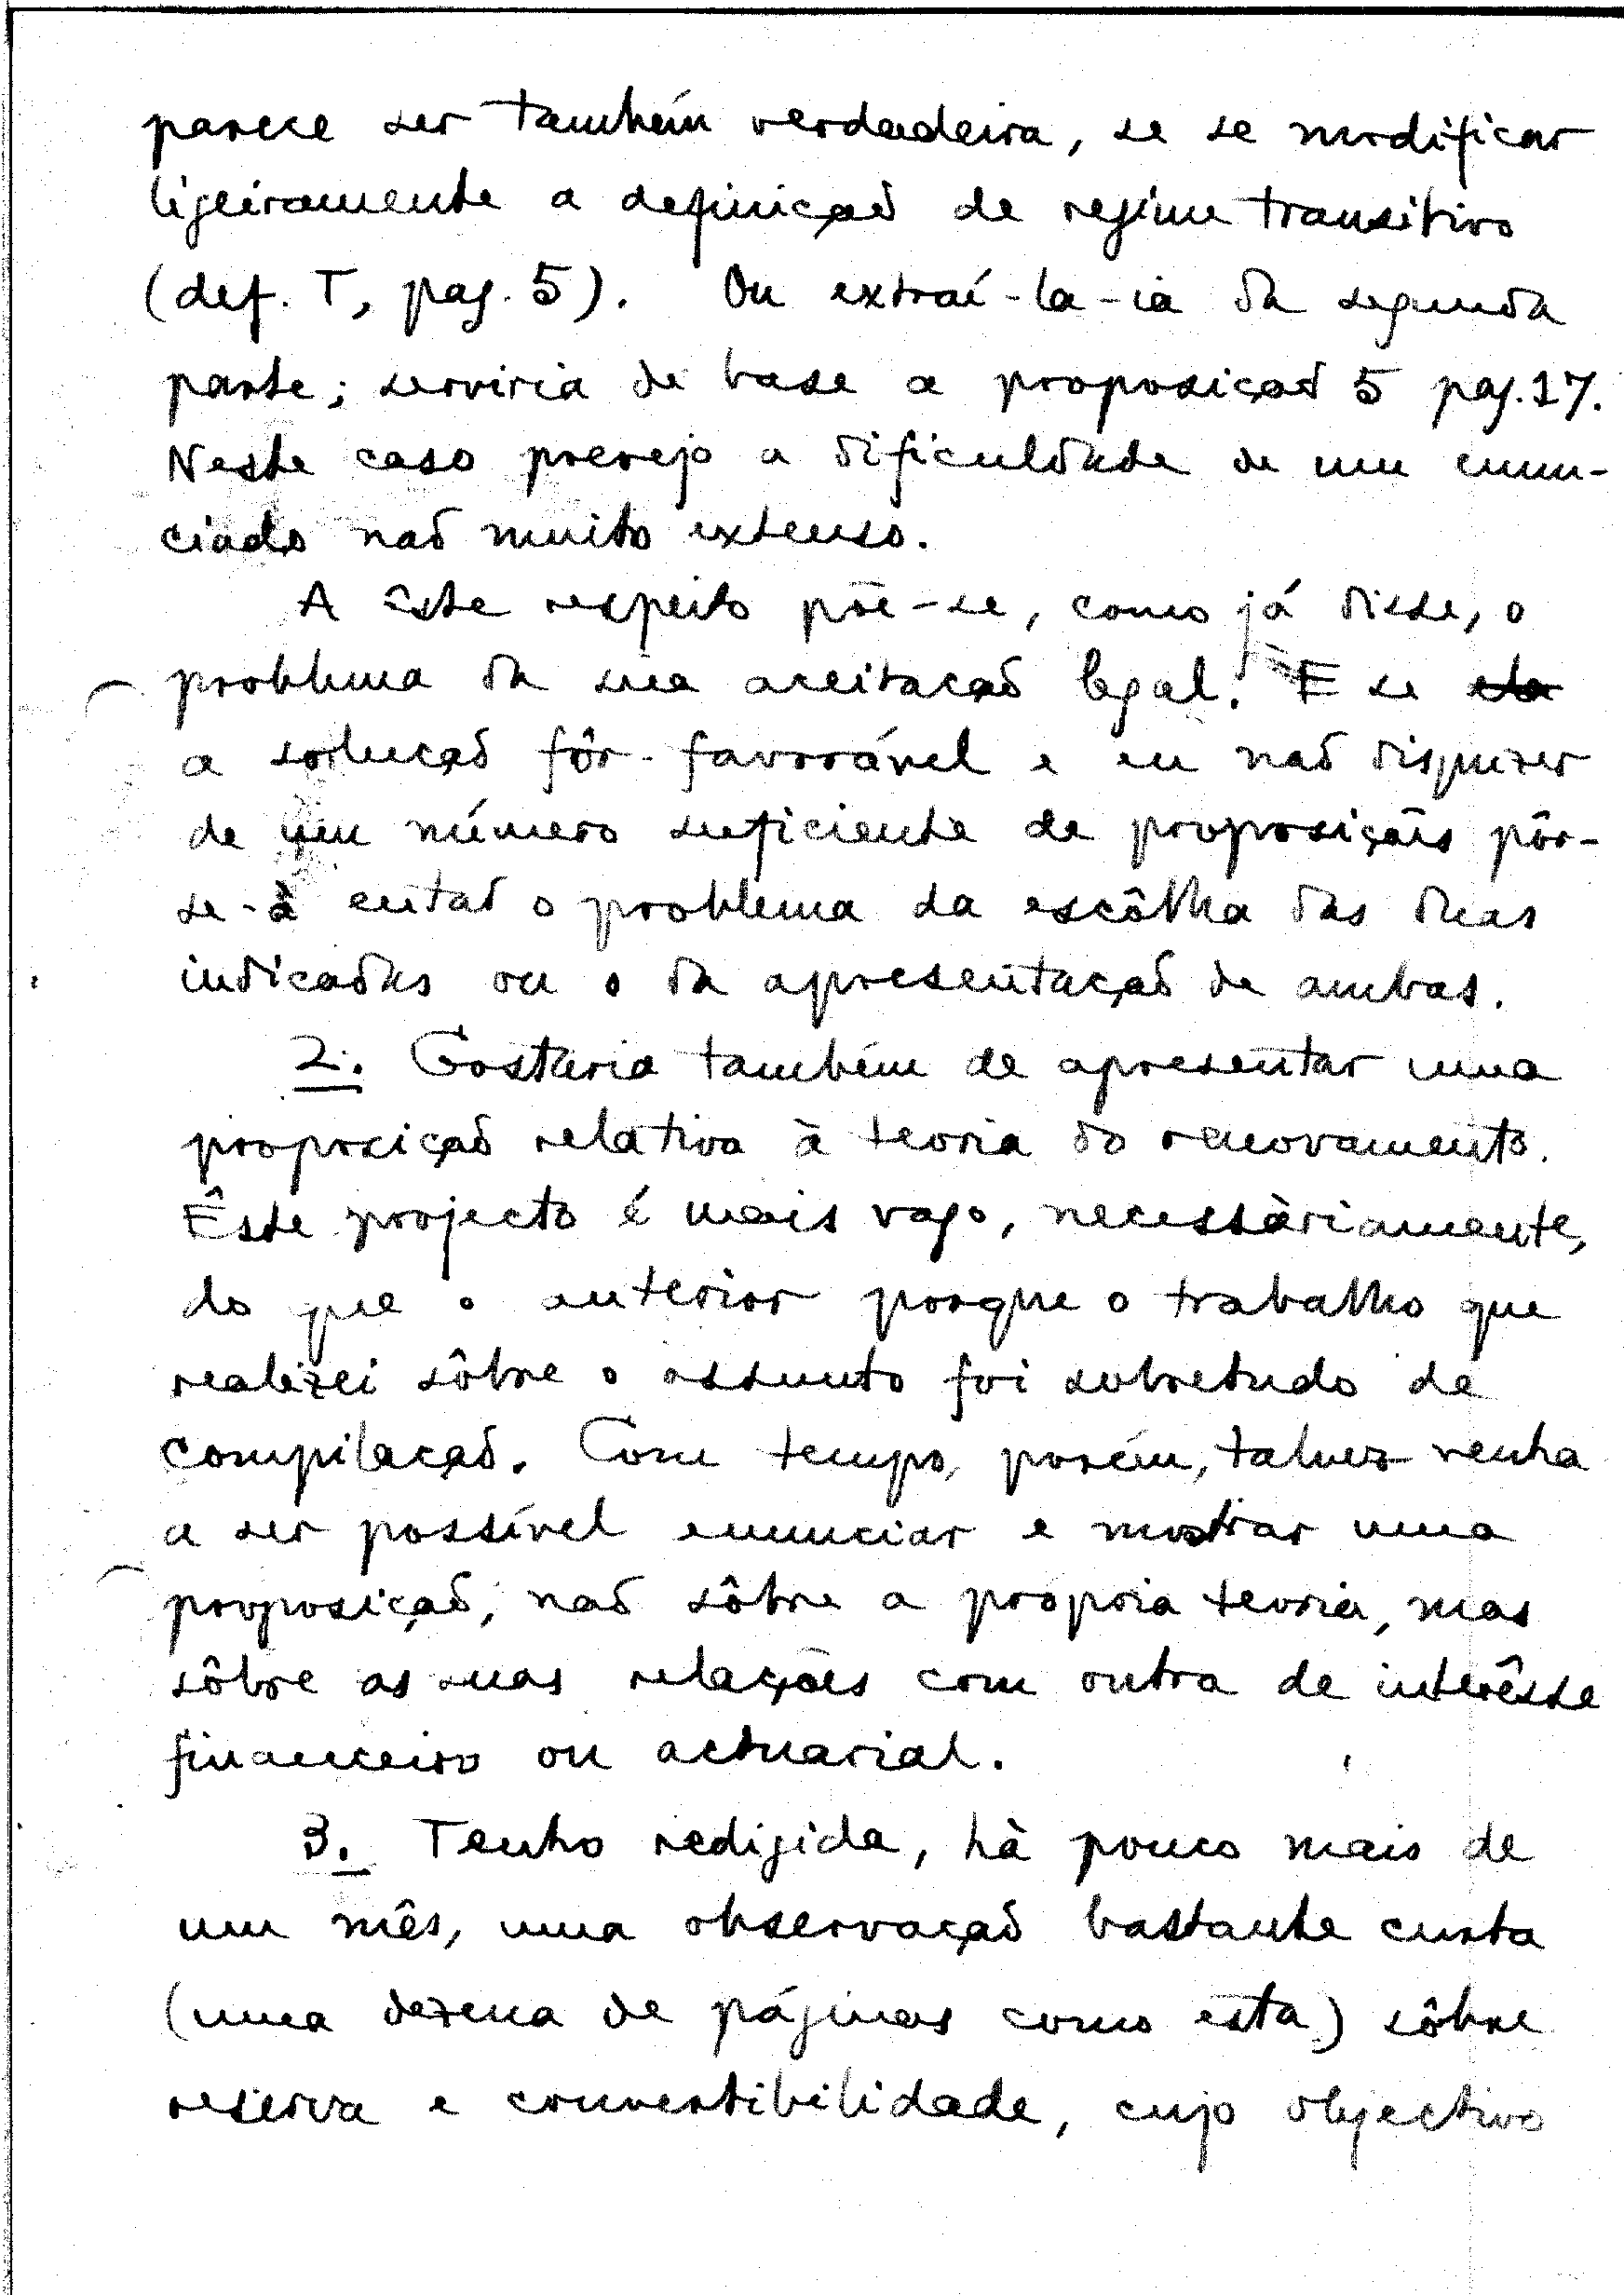 parece ser também verdadeira, se se modificar
ligeiramente a definição de regime transitivo
(def. T, pag. 5). Ou extraí-la-ia da segunda
parte; serviria de base a proposição 5 pag. 17.
Neste caso prevejo a dificuldade de um enun-
ciado não muito extenso.
A êste respeito põe-se, como já disse, o
problema da sua aceitação legal. E se ela
a solução fôr favorável e eu não dispuzer
de um número suficiente de proposições pôr-
se-à então o problema da escôlha das duas
indicadas ou o da apresentação de ambas.
2. Gostaria também de apresentar uma
proposição relativa à teoria do renovamento.
Êste projecto é mais vago, necessàriamente,
do que o anterior porque o trabalho que
realizei sôbre o assunto foi sobretudo de
compilação. Com tempo, porém, talvez venha
a ser possível enunciar e mostrar uma
proposição, não sôbre a propria teoria, mas
sôbre as suas relações com outra de interêsse
financeiro ou actuarial.
3. Tenho redigida, hà pouco mais de
um mês, uma observação bastante curta
(uma dezena de páginas como esta) sôbre
reserva e convertibilidade, cujo objectivo